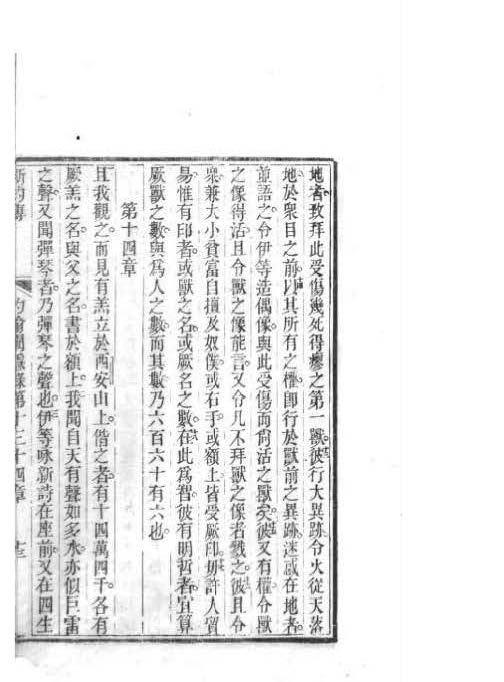 地者致拜此受傷幾死得瘳之第一獸彼行大異跡令火從天落
地於衆目之前以其所有之權卽行於獸前之異跡迷惑在地者
並語之令伊等造偶像與此受傷而尚活之獸矣彼又有權令獸
之像得活且令獸之像能言又令凡不拜獸之像者戮之彼且令
衆兼大小貧富自擅及奴僕或右手或額上皆受厥印毋許人貿
易惟有印者或獸之名或厥名之數在此爲智彼有明哲者宜算
厥獸之數與爲人之數而其數乃六百六十有六也
第十四章
且我觀之而見有羔立於西安山上偕之者有十四萬四千各有
厥羔之名與父之名書於額上我聞自天有聲如多水亦似巨雷
之聲又聞彈琴者乃彈琴之聲也伊等咏新詩在座前又在四生